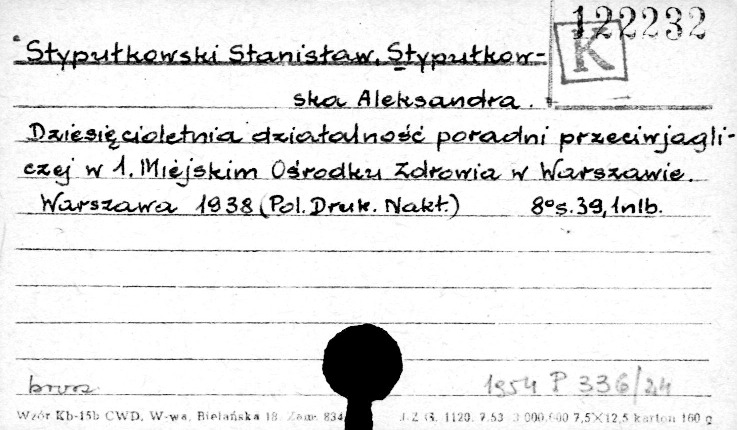 122232
K
Stypułkowski Stanisław, Stypułkow-
ska Aleksandra.
Dziesięcioletnia działalność poradni przeciwjagli-
czej w 1. Miejskim Ośrodku Zdrowia w Warszawie.
Warszawa 1938 (Pol. Druk. Nakł.) 8° s. 39, 1 nlb.
brosz 1954 P 336/24
Wzór Kb-15b CWD, W-wa, Bielańska 18. Zam. 834 J-Z G. 1120. 7.53 3 000.000 7,5X12,5 karton 160 g